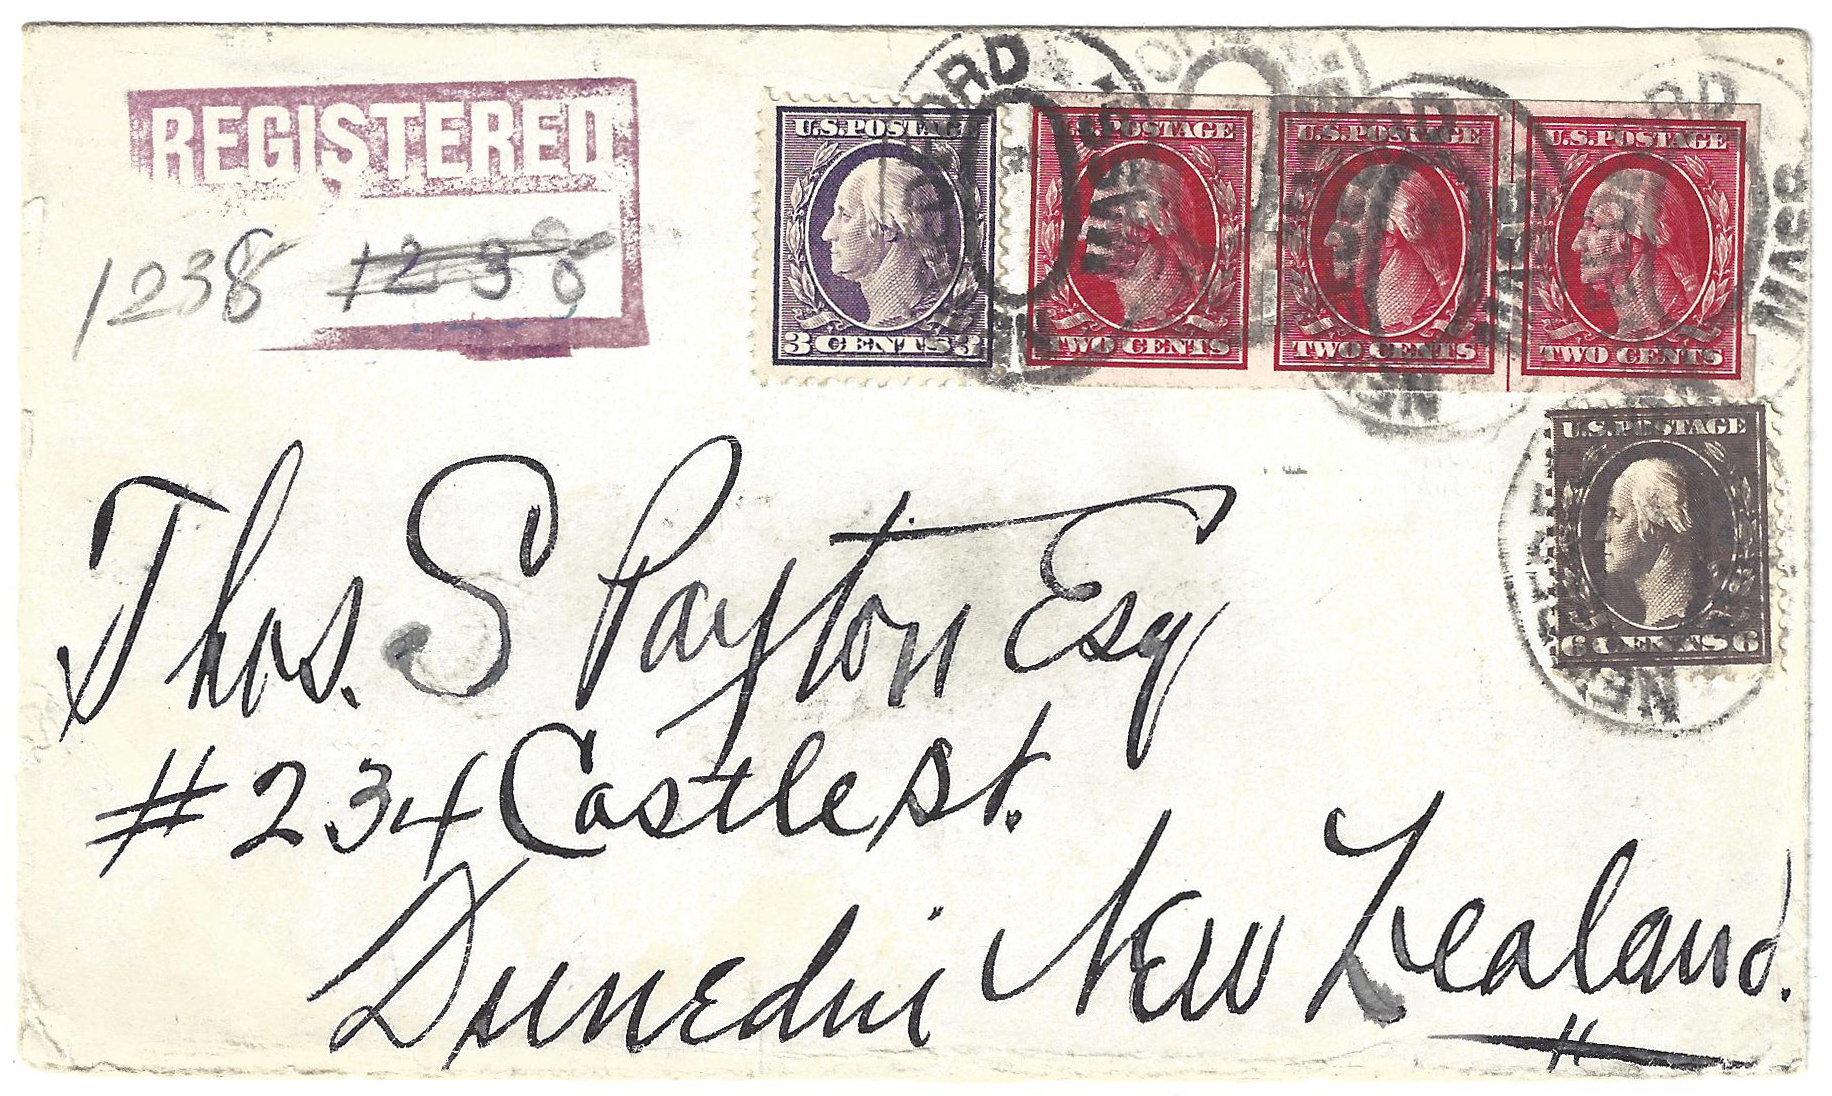 REGISTERED
1238 1238
U.S.POSTAGE
3 CENTS 3
U.S.POSTAGE
TWO CENTS
U.S.POSTAGE
TWO CENTS
U.S.POSTAGE
TWO CENTS
U.S.POSTAGE
6 CENTS 6
NEW BEDFORD MASS
Thos. S Payton Esq
# 234 Castle St.
Dunedin New Zealand.